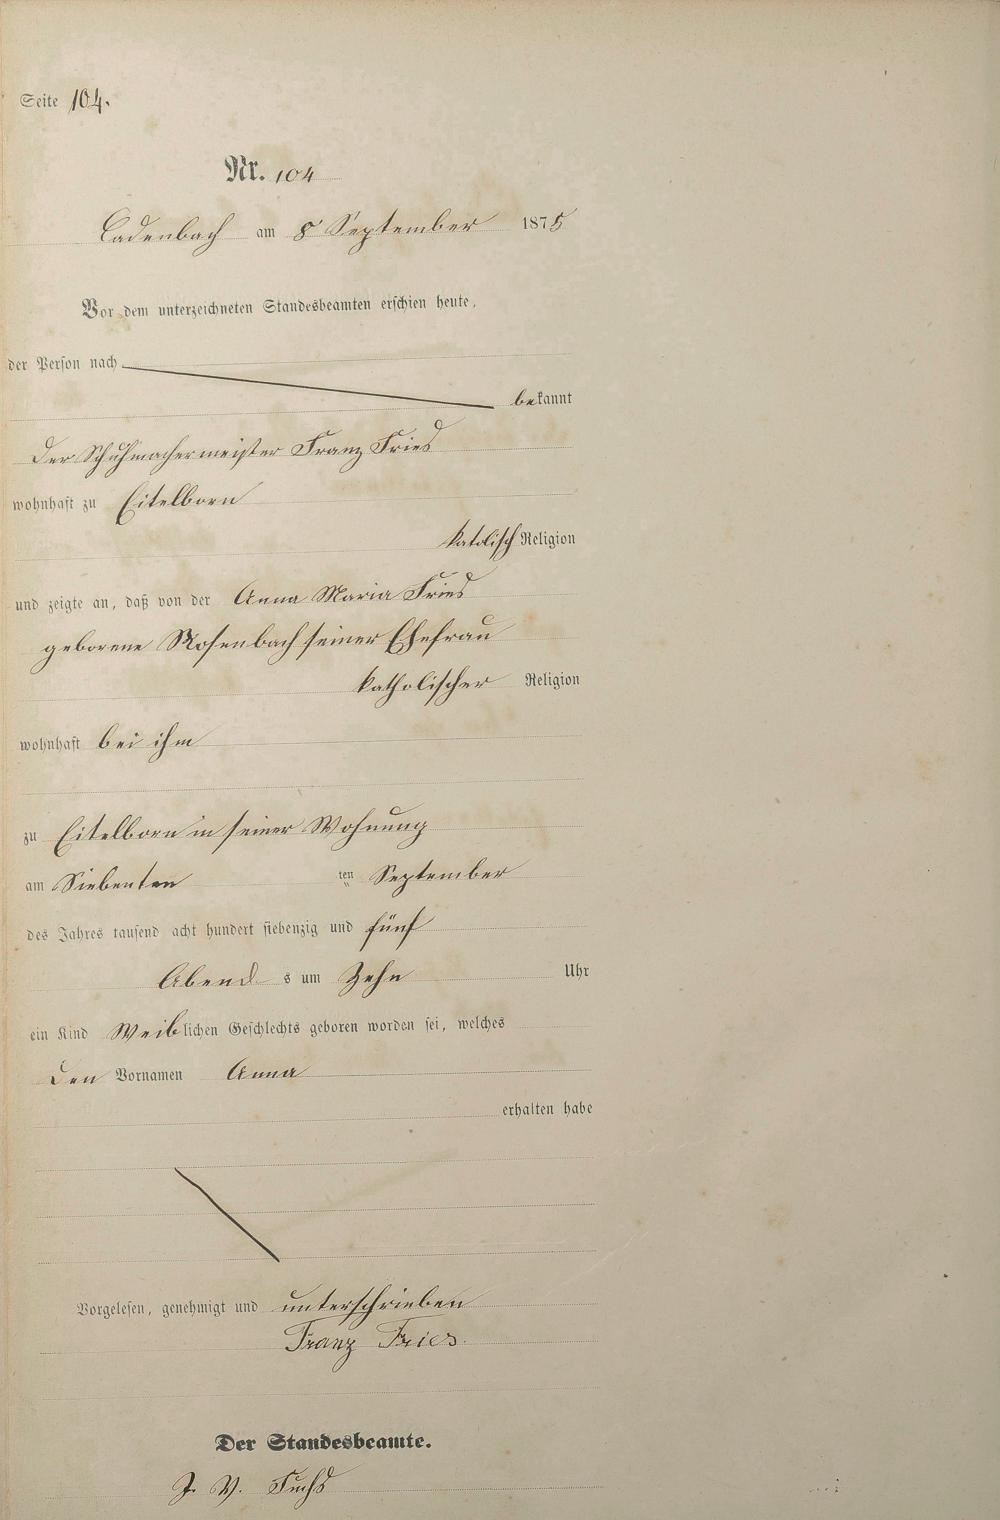 Seite 104.
Nr. 104
Cadenbach am 8 September 1875
Vor dem unterzeichneten Standesbeamten erschien heute,
der Person nach
bekannt
der Schuhmachermeister Franz Fries
wohnhaft zu Eitelborn
katolisch Religion
und zeigte an, daß von der Anna Maria Fries
geborene Rosenbach seiner Ehefrau
katholischer Religion
wohnhaft bei ihm
zu Eitelborn in seiner Wohnung
am Siebenten ten September
des Jahres tausend acht hundert siebenzig und fünf
Abend s um Zehn Uhr
ein Kind Weiblichen Geschlechts geboren worden sei, welches
den Vornamen Anna
erhalten habe
Vorgelesen, genehmigt und unterschrieben
Franz Fries.
Der Standesbeamte.
J. V. Fuchs